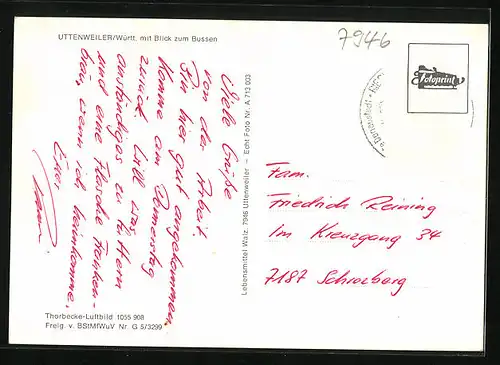 UTTENWEILER/Württ. mit Blick zum Bussen
7946
Fotoprint
Viele Grüße
von der Arbeit.
Bin hier gut angekommen.
Komme am Donnerstag
zurück. Will was
anständiges zu futtern
und eine Flasche Franken-
bräu, wenn ich heimkomme.
Euer
Lebensmittel Walz, 7946 Uttenweiler – Echt Foto Nr. A 713 003
Fam.
Friedrich Reining
Im Kreuzgang 34
7187 Schrozberg
Thorbecke-Luftbild 1055 908
Freig. v. BStMfWuV Nr. G 5/3299